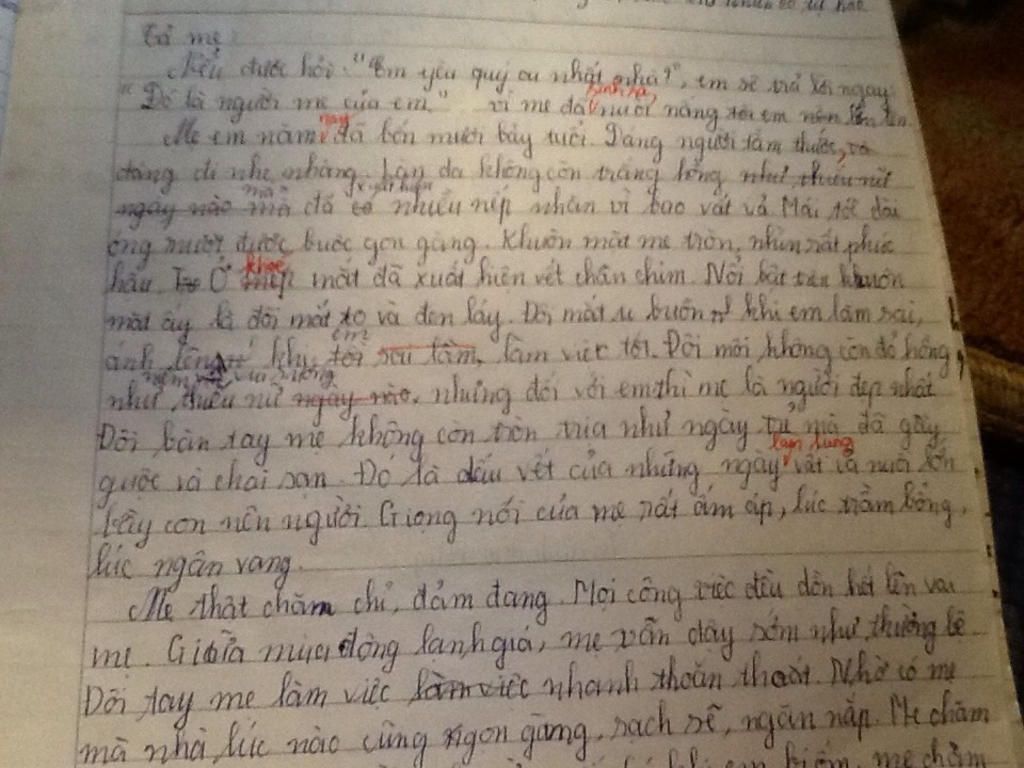 Tả mẹ
Nếu được hỏi: "Em yêu quý ai nhất nhà?", em sẽ trả lời ngay
sinh ra,
"Đó là người mẹ của em." vì mẹ đã nuôi nấng tới em nên lớn lên.
nay
Mẹ em năm đã bốn mươi bảy tuổi. Dáng người tầm thước, và
dáng đi nhẹ nhàng. Làn da không còn trắng hồng như thiếu nữ
mà xuất hiện
ngày nào mà đã có nhiều nếp nhăn vì bao vất vả. Mái tóc dài
óng mượt được buộc gọn gàng. Khuôn mặt mẹ tròn, nhìn rất phúc
khoé
hậu. Ở mép mắt đã xuất hiện vết chân chim. Nổi bật trên khuôn
mặt ấy là đôi mắt to và đen láy. Đôi mắt u buồn khi em làm sai,
em
ánh lên khi tôi làm việc tốt. Đôi môi không còn đỏ hồng,
niềm vui sướng
như thiếu nữ ngày nào, nhưng đối với em thì mẹ là người đẹp nhất.
Đôi bàn tay mẹ không còn tròn trịa như ngày mà đã gầy
lam lũng
guộc và chai sạn. Đó là dấu vết của những ngày vất vả nuôi lớn
bầy con nên người. Giọng nói của mẹ rất ấm áp, lúc trầm bổng,
lúc ngân vang.
Mẹ thật chăm chỉ, đảm đang. Mọi công việc đều dồn hết lên vai
mẹ. Giữa mùa đông lạnh giá, mẹ vẫn dậy sớm như thường lệ.
Đôi tay mẹ làm việc làm việc nhanh thoăn thoắt. Nhờ có mẹ
mà nhà lúc nào cũng gọn gàng, sạch sẽ, ngăn nắp. Mẹ chăm
mẹ chăm